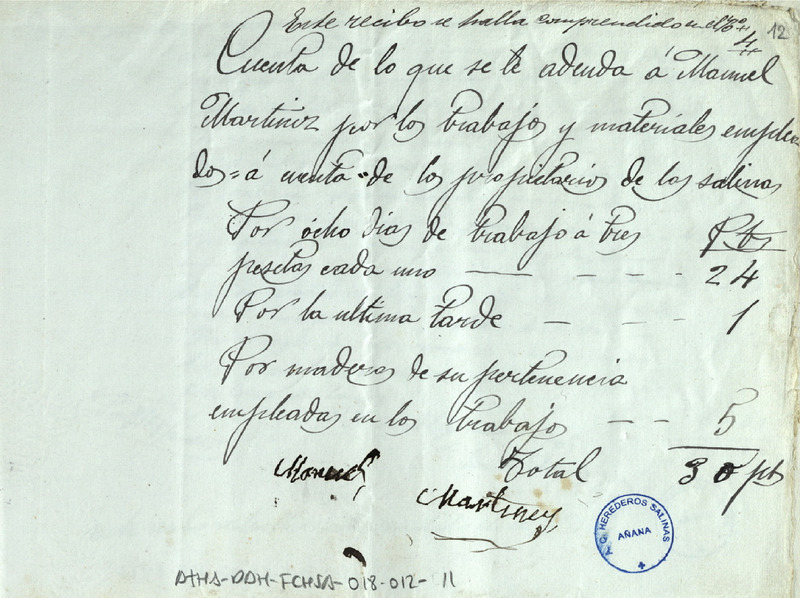 Este recibo se halla comprendido en el
12
4
Cuenta de lo que se le adeuda á Manuel
Martinez por los trabajos y materiales emplea
dos = á cuenta = de los propietarios de las salinas
Por ócho dias de trabajo á tres Pts
pesetas cada uno — — — — 24
Por la ultima tarde — — — 1
Por maderas de su pertenencia
empleadas en los trabajos — — 5
Total 30 pts
Manuel
Martinez
HEREDEROS SALINAS
AÑANA
ATHA-DAH-FCHSA-018-012-11